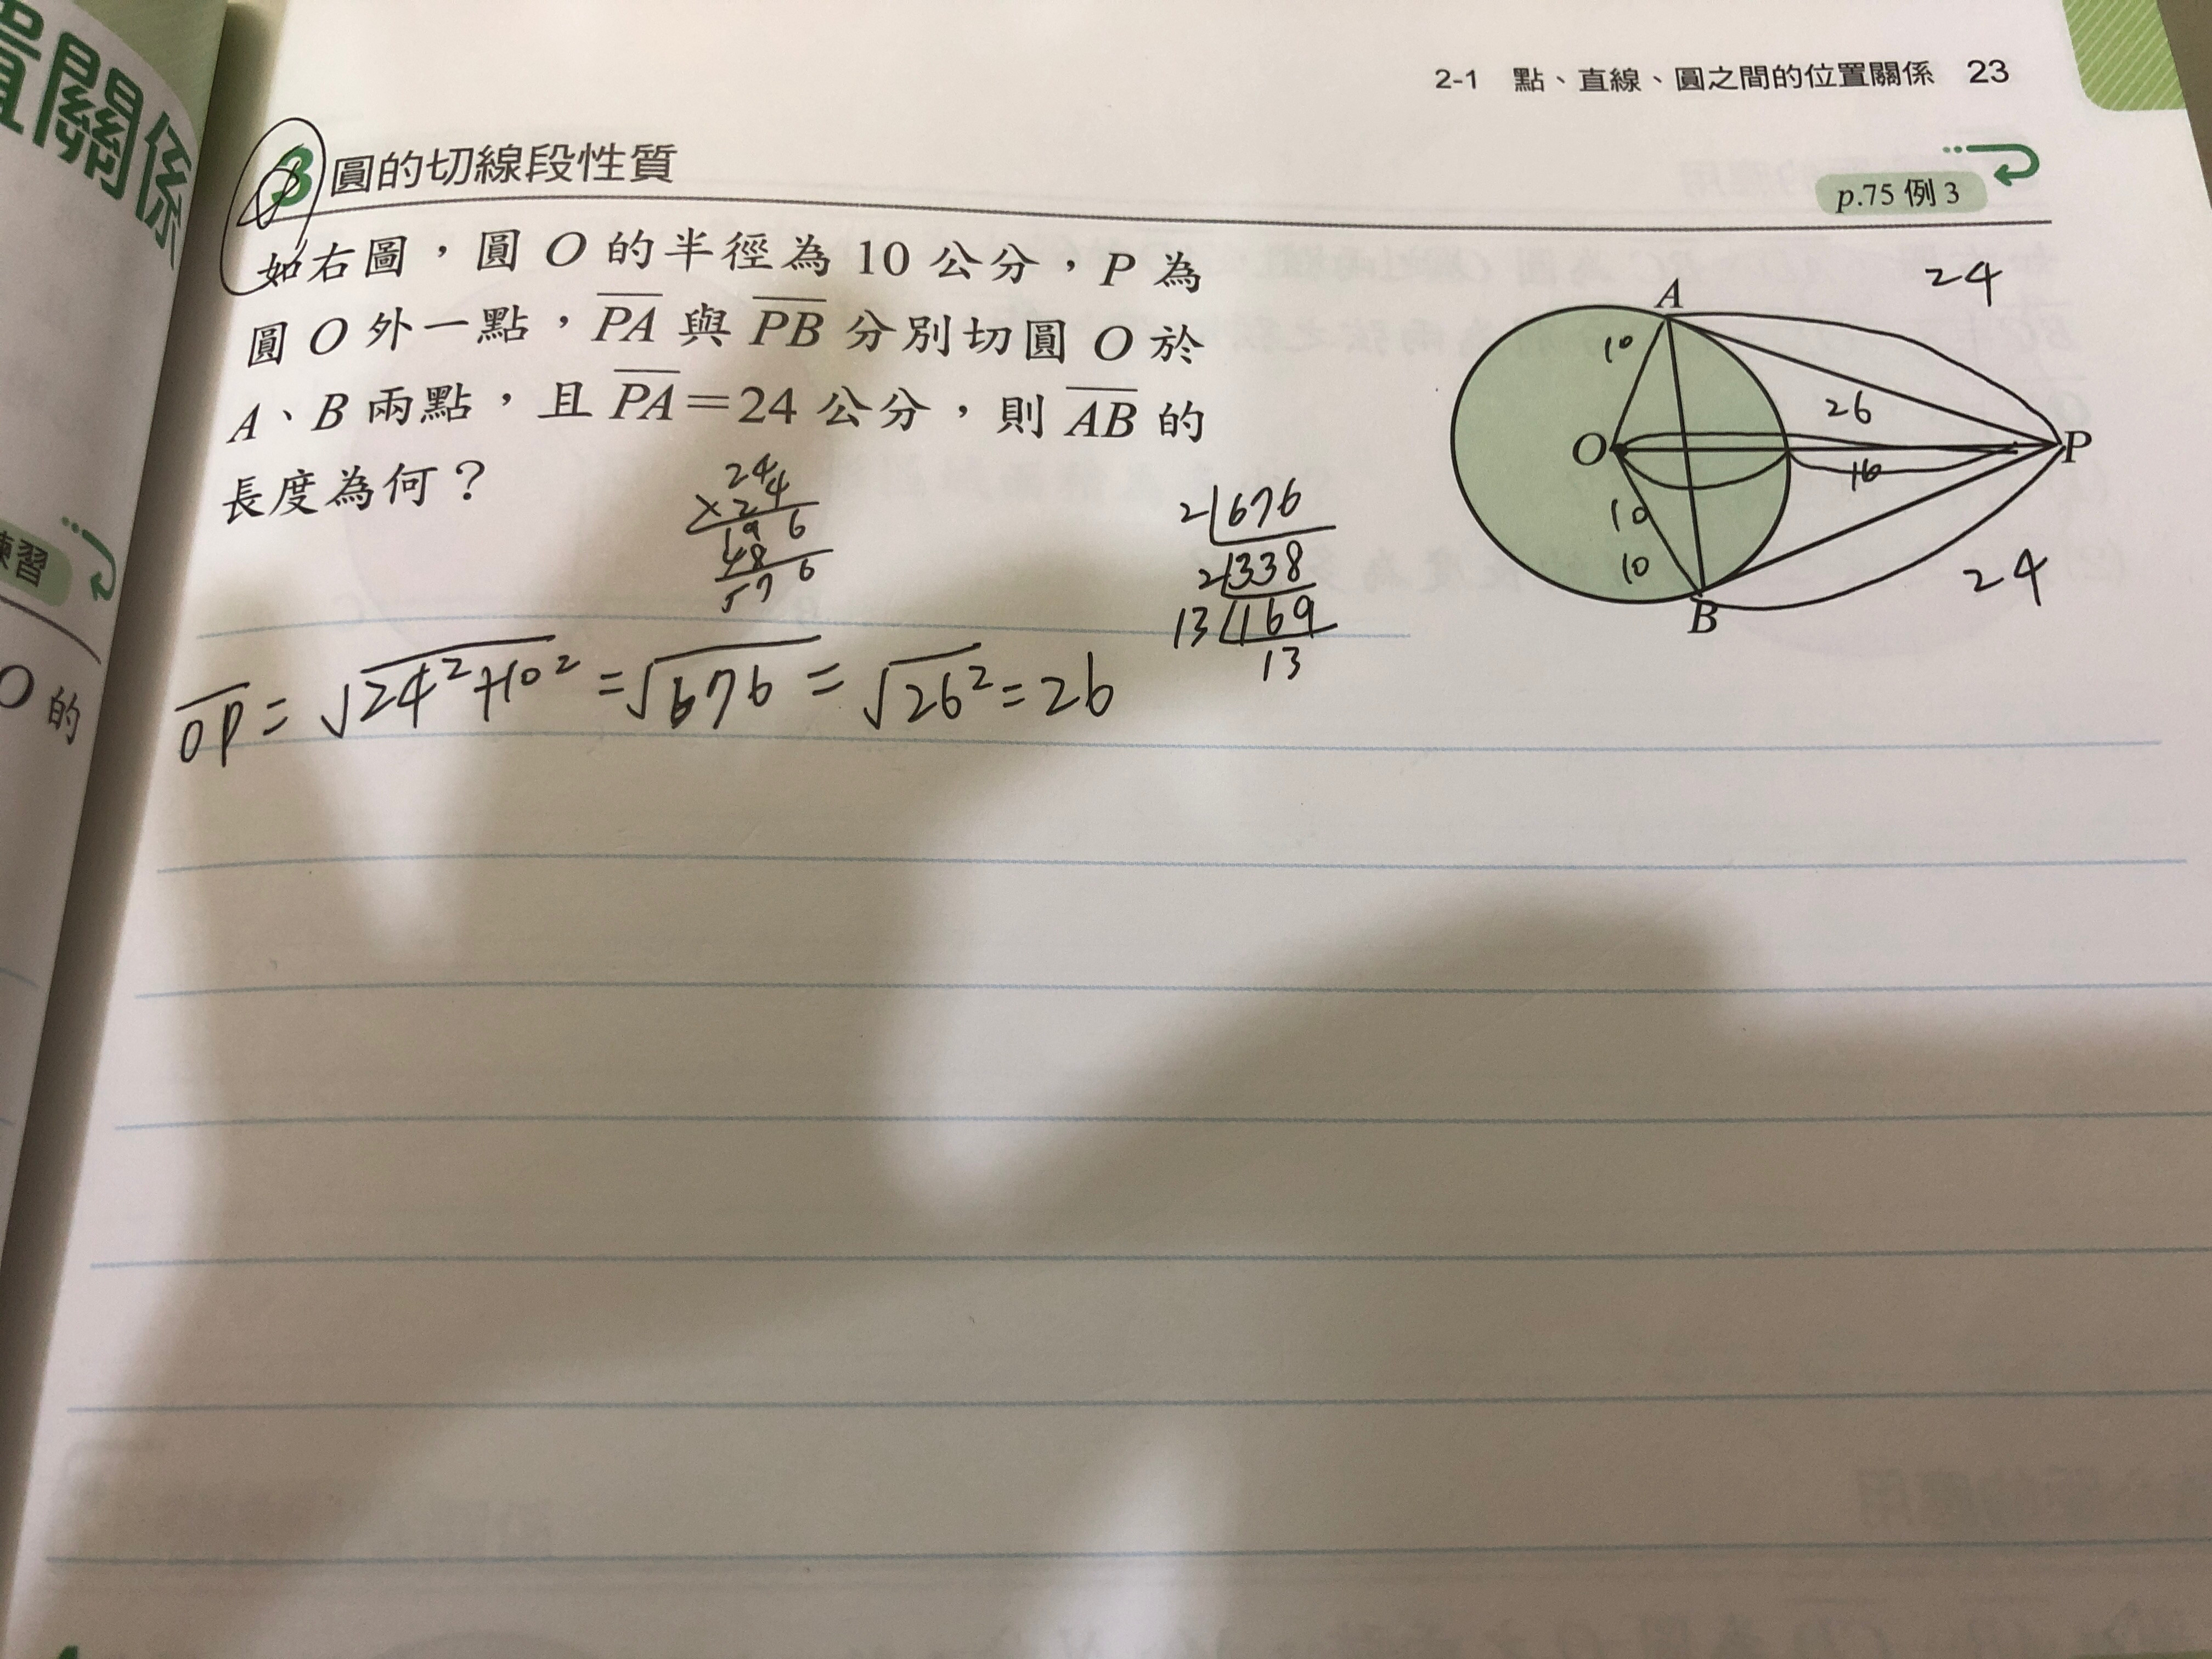 置關係
2-1 點、直線、圓之間的位置關係 23
3 圓的切線段性質
p.75 例 3
如右圖，圓 O 的半徑為 10 公分，P 為
圓 O 外一點，PA 與 PB 分別切圓 O 於
A、B 兩點，且 PA＝24 公分，則 AB 的
長度為何？
練習
O 的
A
24
10
26
O
P
16
10
10
B
24
24
×24
96
48
576
2 676
2 338
13 169
13
OP = √24²+10² = √676 = √26² = 26